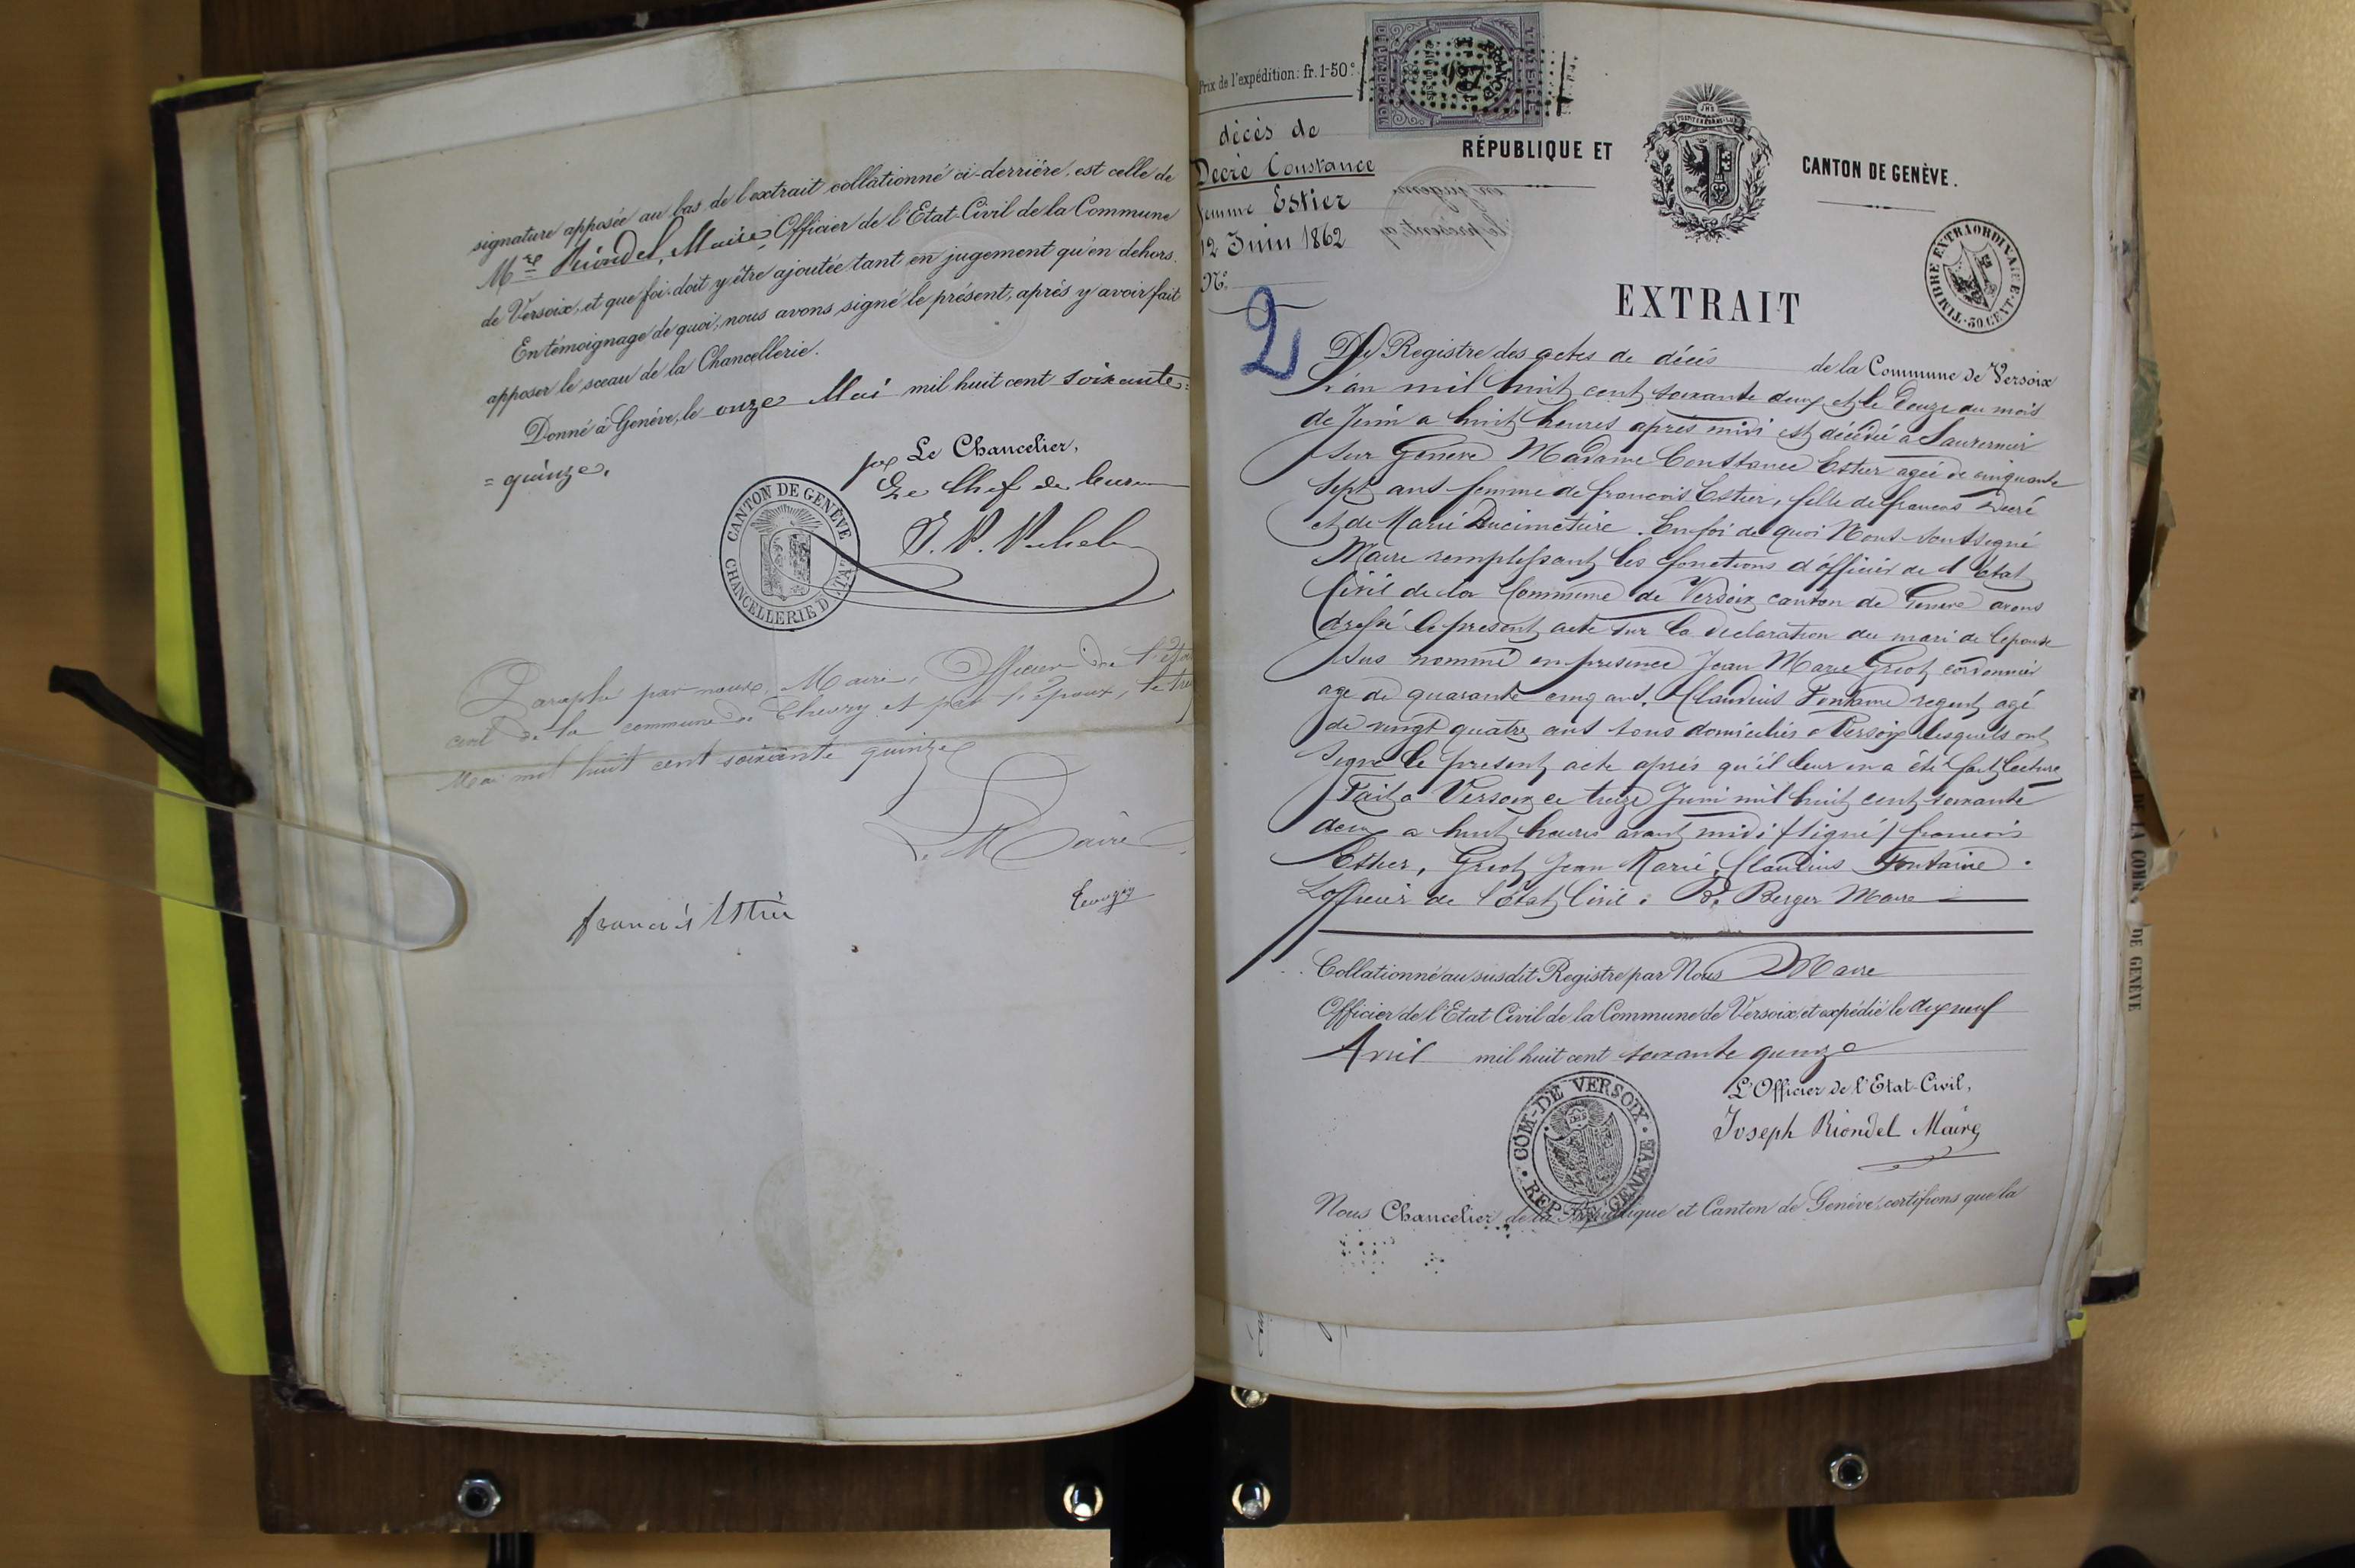 signature apposée au bas de l'extrait collationné ci-derrière, est celle de
Mre Riondel, Maire, Officier de l'Etat-Civil de la Commune
de Versoix, et que foi doit y être ajoutée tant en jugement qu'en dehors.
En témoignage de quoi, nous avons signé le présent, après y avoir fait
apposer le sceau de la Chancellerie.
Donné à Genève, le onze Mai mil huit cent soixante=
=quinze.
Le Chancelier,
Le Chef de bureau
CANTON DE GENÈVE
CHANCELLERIE D'ETAT
Paraphé par nous, Maire, Officier de l'état
civil de la commune de Chevry et par l'époux, le
Mai mil huit cent soixante quinze
Le Maire
francois Estier
Prix de l'expédition: fr. 1-50 c.
décès de
Decré Constance
femme Estier
12 Juin 1862
No.
2
RÉPUBLIQUE ET
CANTON DE GENÈVE.
TIMBRE EXTRAORDINAIRE
30 CENT.
EXTRAIT
Du Registre des actes de décès de la Commune de Versoix
L'an mil huit cent soixante deux et le douze du mois
de Juin a huit heures après midi est décédée a
sur Geneve Madame Constance Estier agée de cinquante
sept ans femme de francois Estier, fille de francois Decré
et de Marie Ducimetière. En foi de quoi Nous soussigné
Maire remplissant les fonctions d'officier de l'Etat
Civil de la Commune de Versoix canton de Geneve avons
dressé le present acte sur la declaration du mari de l'epouse
sus nommé en presence Jean Marie Griot cordonnier
age de quarante cinq ans, Claudius Fontaine regent agé
de vingt quatre ans tous domiciliés a Versoix lesquels ont
signé le present acte après qu'il leur en a été fait lecture
Fait a Versoix ce treize Juin mil huit cent soixante
deux a huit heures avant midi /signé/ francois
Estier, Griot Jean Marie, Claudius Fontaine.
L'officier de l'Etat Civil: B. Berger Maire
Collationné au susdit Registre par Nous Maire
Officier de l'Etat Civil de la Commune de Versoix et expédié le dix neuf
Avril mil huit cent soixante quinze
L'Officier de l'Etat-Civil,
Joseph Riondel Maire
COM. DE VERSOIX
REP. DE GENEVE
Nous Chancelier de la République et Canton de Genève certifions que la
DE GENÈVE